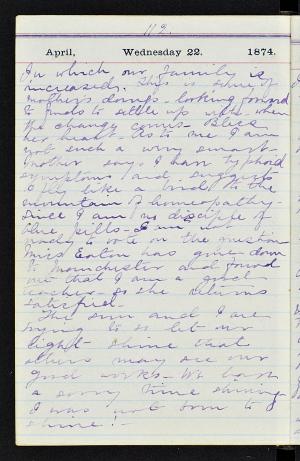 112.
April, Wednesday 22. 1874.
In which our family is
increased. This is some of
mothers doings - looking forward
to funds to settle up with when
the change comes. Bless
her heart. As to me I am
not such a very smart.
Mother says I have typhoid
symptoms and suggests
I fly like a bird to the
mountain of homeopathy -
since I am no disciple of
blue pills - I am not
ready to vote on the question
Miss Eaton has gone down
to Manchester and found
out that I am a good
teacher, so she returns
satisfied.
The sun and I are
trying to so let our
light - shine that
others may see our
good works - We have
a sorry time shining -
I was not born to
shine! -